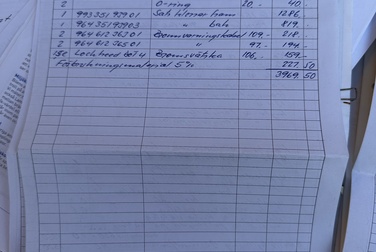 2 O-ring 20,- 40,-
1 993 351 929 01 Sats klossar fram 1286,-
1 964 351 939 03 " " bak 819,-
2 964 612 363 01 Bromsvarningskabel 109,- 218,-
2 964 612 365 01 " 97,- 194,-
Lockheed Dot 4 Bromsvätska 106,- 159,-
Förbrukningsmaterial 5% 227,50
3969,50